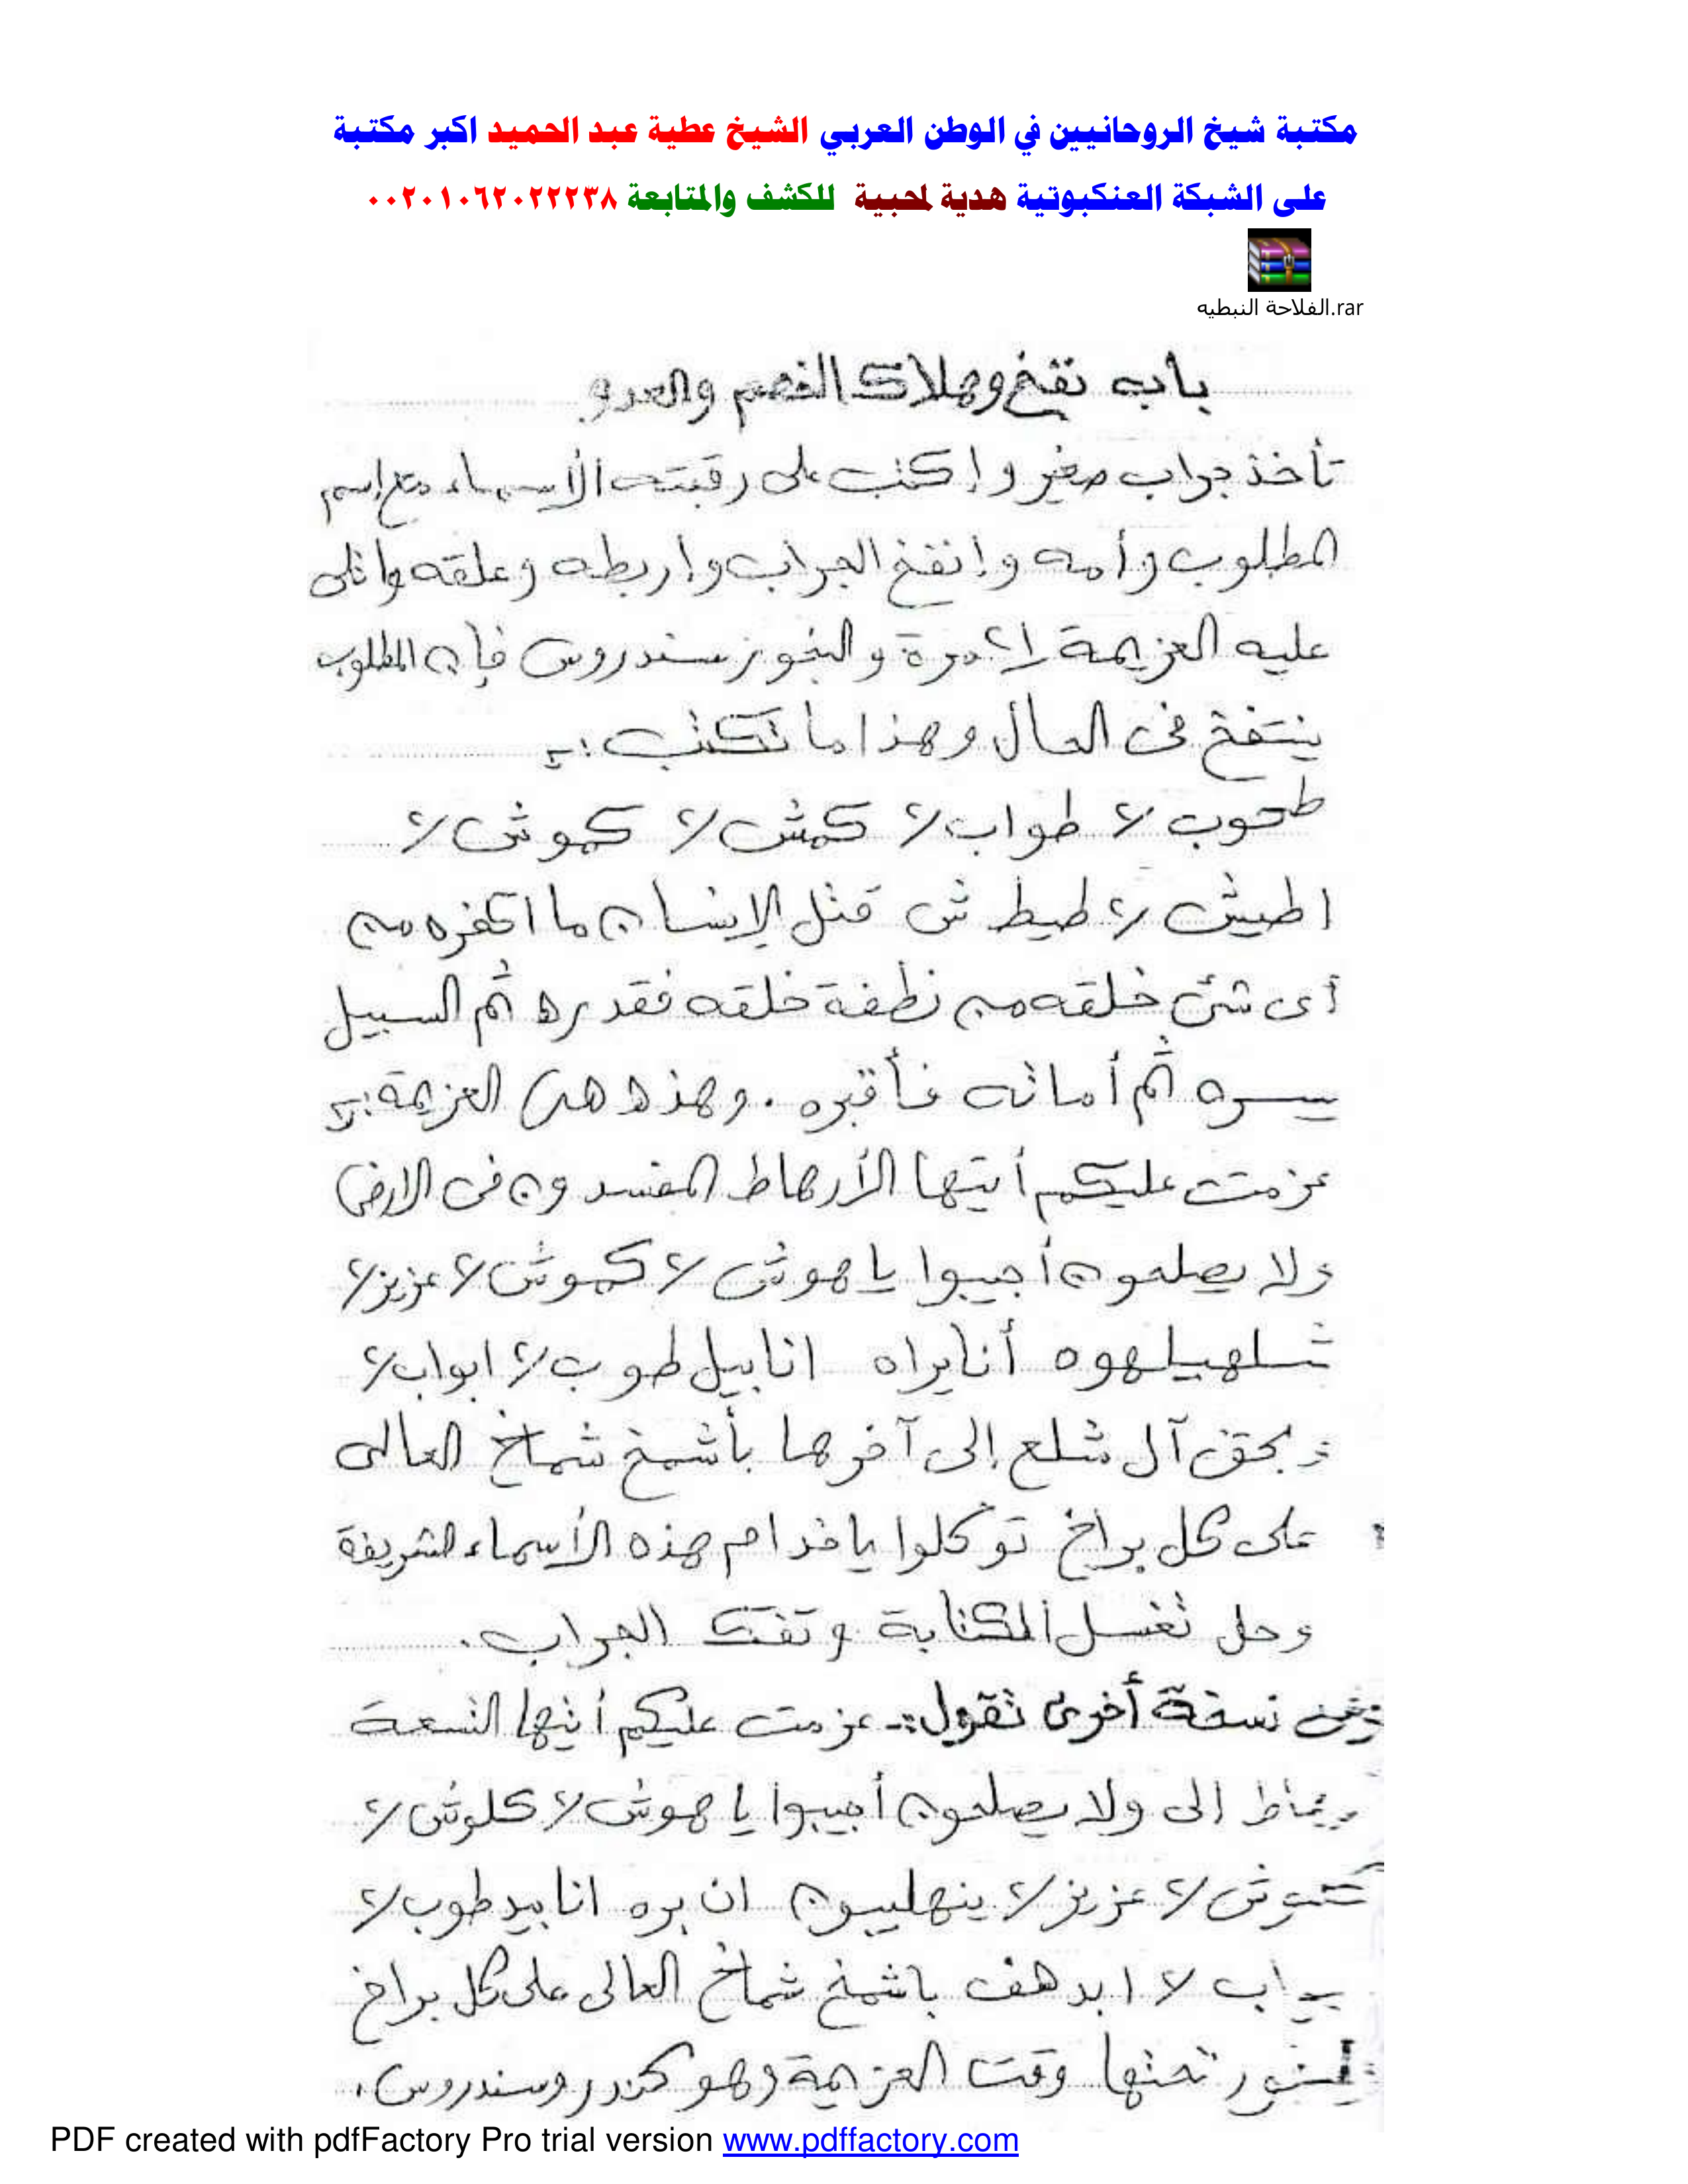 مكتبة شيخ الروحانيين في الوطن العربي الشيخ عطية عبد الحميد اكبر مكتبة
على الشبكة العنكبوتية هدية لمحبية للكشف والمتابعة ٠٠٢٠١٠٦٢٠٢٢٢٣٨
الفلاحة النبطيه.rar
باب نفخ وهلاك الخصم والعدو
تأخذ جراب صغير وإكتب على رقبته الأسماء مع إسم
المطلوب وأمه وإنفخ الجراب وإربطه وعلقه واتلى
عليه العزيمة مرة والبخور سندروس فإن المطلوب
ينتفخ فى الحال وهذا ما تكتب :-
طحوب ٢/ طواب ٢/ كمش ٢/ كموش ٢/
اطيش ٢/ طيط ش قتل الإنسان ما اكفره من
أى شئ خلقه من نطفة خلقه فقدره ثم السبيل
يسره ثم أماته فأقبره . وهذه هى العزيمة :-
عزمت عليكم أيتها الأرهاط المفسدون فى الارض
ولا يصلحون أجيبوا يا هوش ٢/ كموش ٢/ عزيز ٢/
شلهيلهوه أنا يراه انابيل طوب ٢/ ابواب ٢/
وبحق آل شلع إلى آخرها بأشمخ شماخ العالى
على كل براخ توكلوا يا خدام هذه الأسماء الشريفة
وحل تغسل الكتابة وتفتك الجراب .
نسخة أخرى تقول :- عزمت عليكم أيتها التسعة
إلى ولا يصلحون أجيبوا يا هوش ٢/ كلوش ٢/
عزيز ٢/ ينهليون ان بره انابيد طوب ٢/
ابد هف باشمخ شماخ العالى على كل براخ
تحتها وقت العزيمة وهو كندر وسندروس .
PDF created with pdfFactory Pro trial version www.pdffactory.com